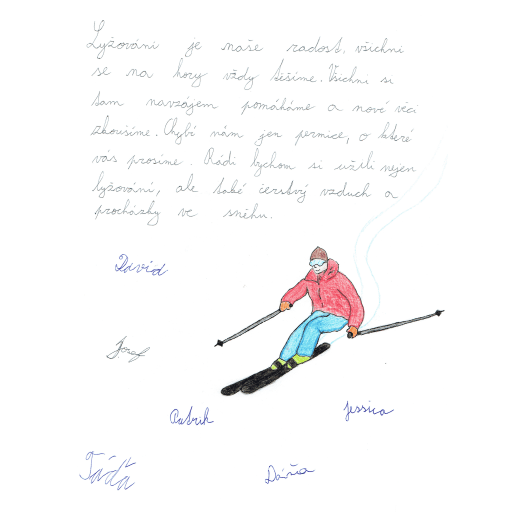 Lyžování je naše radost, všichni
se na hory vždy těšíme. Všichni si
tam navzájem pomáháme a nové věci
zkoušíme. Chybí nám jen permice, o které
vás prosíme. Rádi bychom si užili nejen
lyžování, ale také čerstvý vzduch a
procházky ve sněhu.
David
Josef
Patrik
Jessica
Táďa